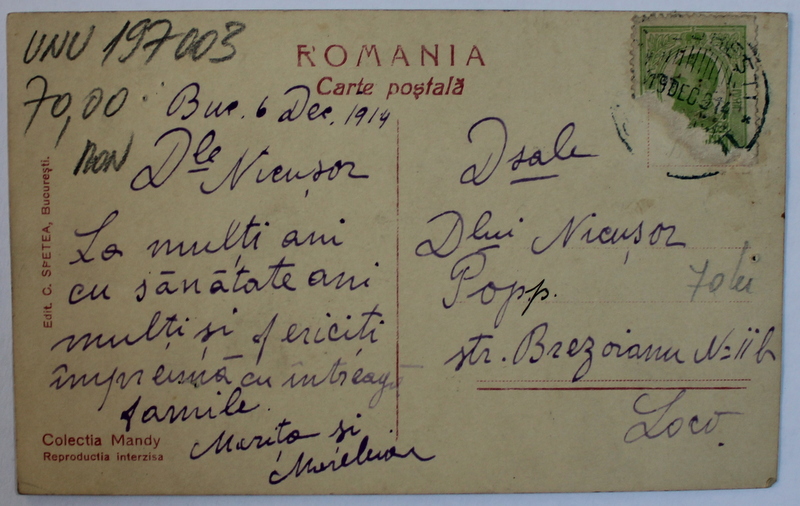 UNU 197003
70,00
RON
ROMANIA
Carte poștală
19 DEC 914
Buc. 6 Dec. 1914
Dle Nicușor
La mulți ani
cu sănătate ani
mulți și fericiți
împreună cu întreaga
familie.
Marița și
Dsale
Dlui Nicușor
Popp.
70 lei
str. Brezoianu No 11 b
Loco.
Edit. C. SPETEA, București.
Colectia Mandy
Reproductia interzisa